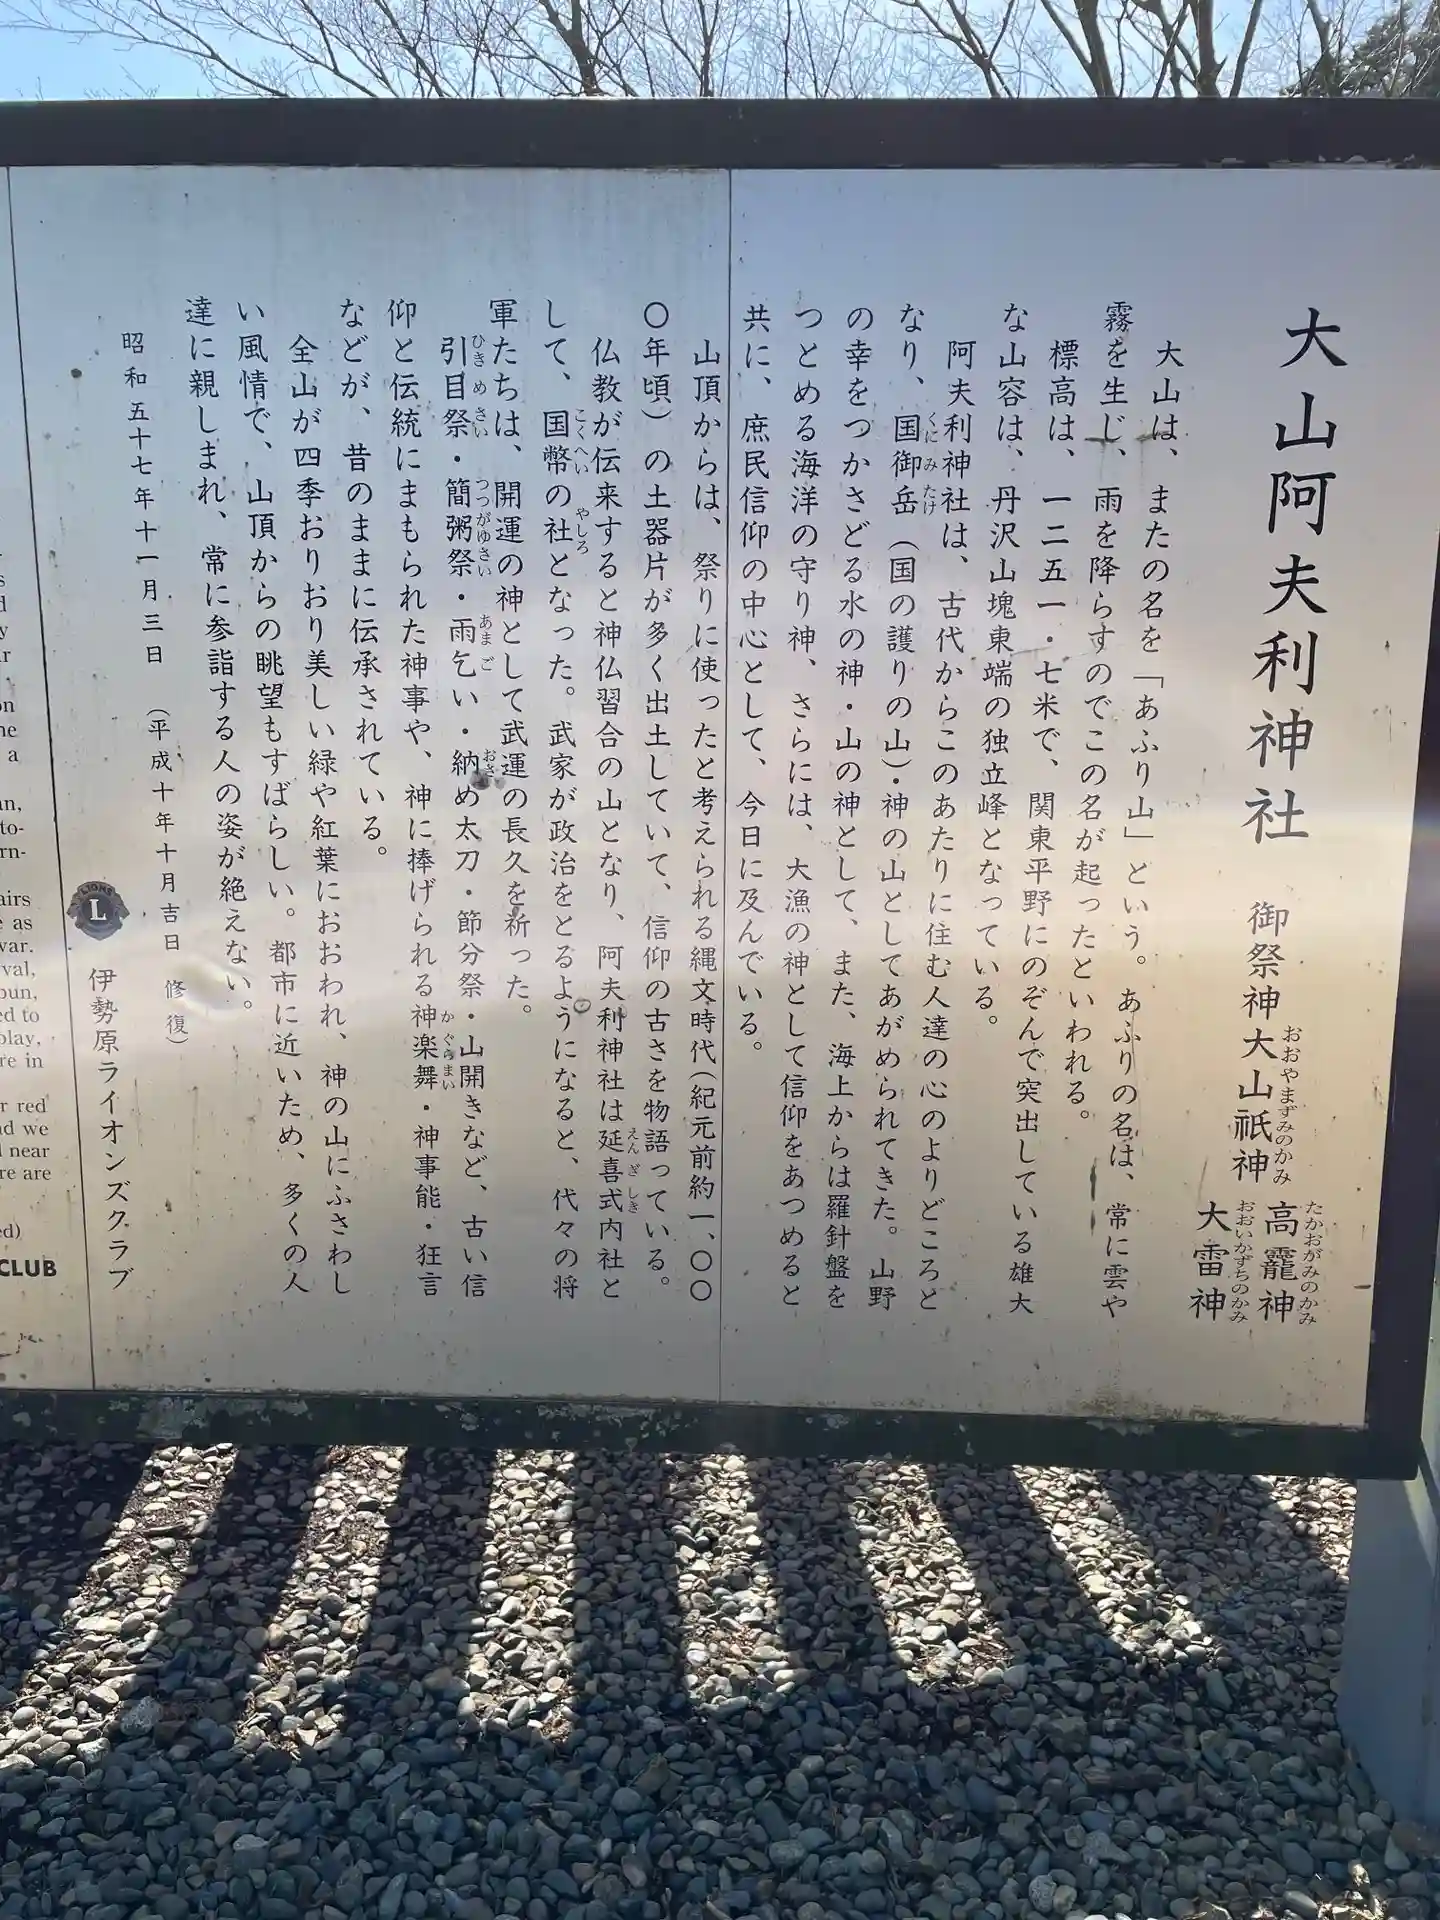 大山阿夫利神社 御祭神大山祇神 高龗神 大雷神
おおやまずみのかみ
たかおがみのかみ
おおいかずちのかみ
大山は、またの名を「あふり山」という。あふりの名は、常に雲や
霧を生じ、雨を降らすのでこの名が起ったといわれる。
標高は、一二五一・七米で、関東平野にのぞんで突出している雄大
な山容は、丹沢山塊東端の独立峰となっている。
阿夫利神社は、古代からこのあたりに住む人達の心のよりどころと
なり、国御岳（国の護りの山）・神の山としてあがめられてきた。山野
くにみたけ
の幸をつかさどる水の神・山の神として、また、海上からは羅針盤を
つとめる海洋の守り神、さらには、大漁の神として信仰をあつめると
共に、庶民信仰の中心として、今日に及んでいる。
山頂からは、祭りに使ったと考えられる縄文時代（紀元前約一、〇〇
〇年頃）の土器片が多く出土していて、信仰の古さを物語っている。
仏教が伝来すると神仏習合の山となり、阿夫利神社は延喜式内社と
えんぎしき
して、国幣の社となった。武家が政治をとるようになると、代々の将
こくへい やしろ
軍たちは、開運の神として武運の長久を祈った。
引目祭・簡粥祭・雨乞い・納め太刀・節分祭・山開きなど、古い信
ひきめさい つつがゆさい あまご おさ
仰と伝統にまもられた神事や、神に捧げられる神楽舞・神事能・狂言
かぐらまい
などが、昔のままに伝承されている。
全山が四季おりおり美しい緑や紅葉におおわれ、神の山にふさわし
い風情で、山頂からの眺望もすばらしい。都市に近いため、多くの人
達に親しまれ、常に参詣する人の姿が絶えない。
昭和五十七年十一月三日 （平成十年十月吉日 修復）
LIONS
L
伊勢原ライオンズクラブ
s
d
y
r
.
on
he
a
an,
to-
rn-
airs
e as
war.
val,
oun,
ed to
play,
re in
r red
nd we
l near
re are
ed)
CLUB